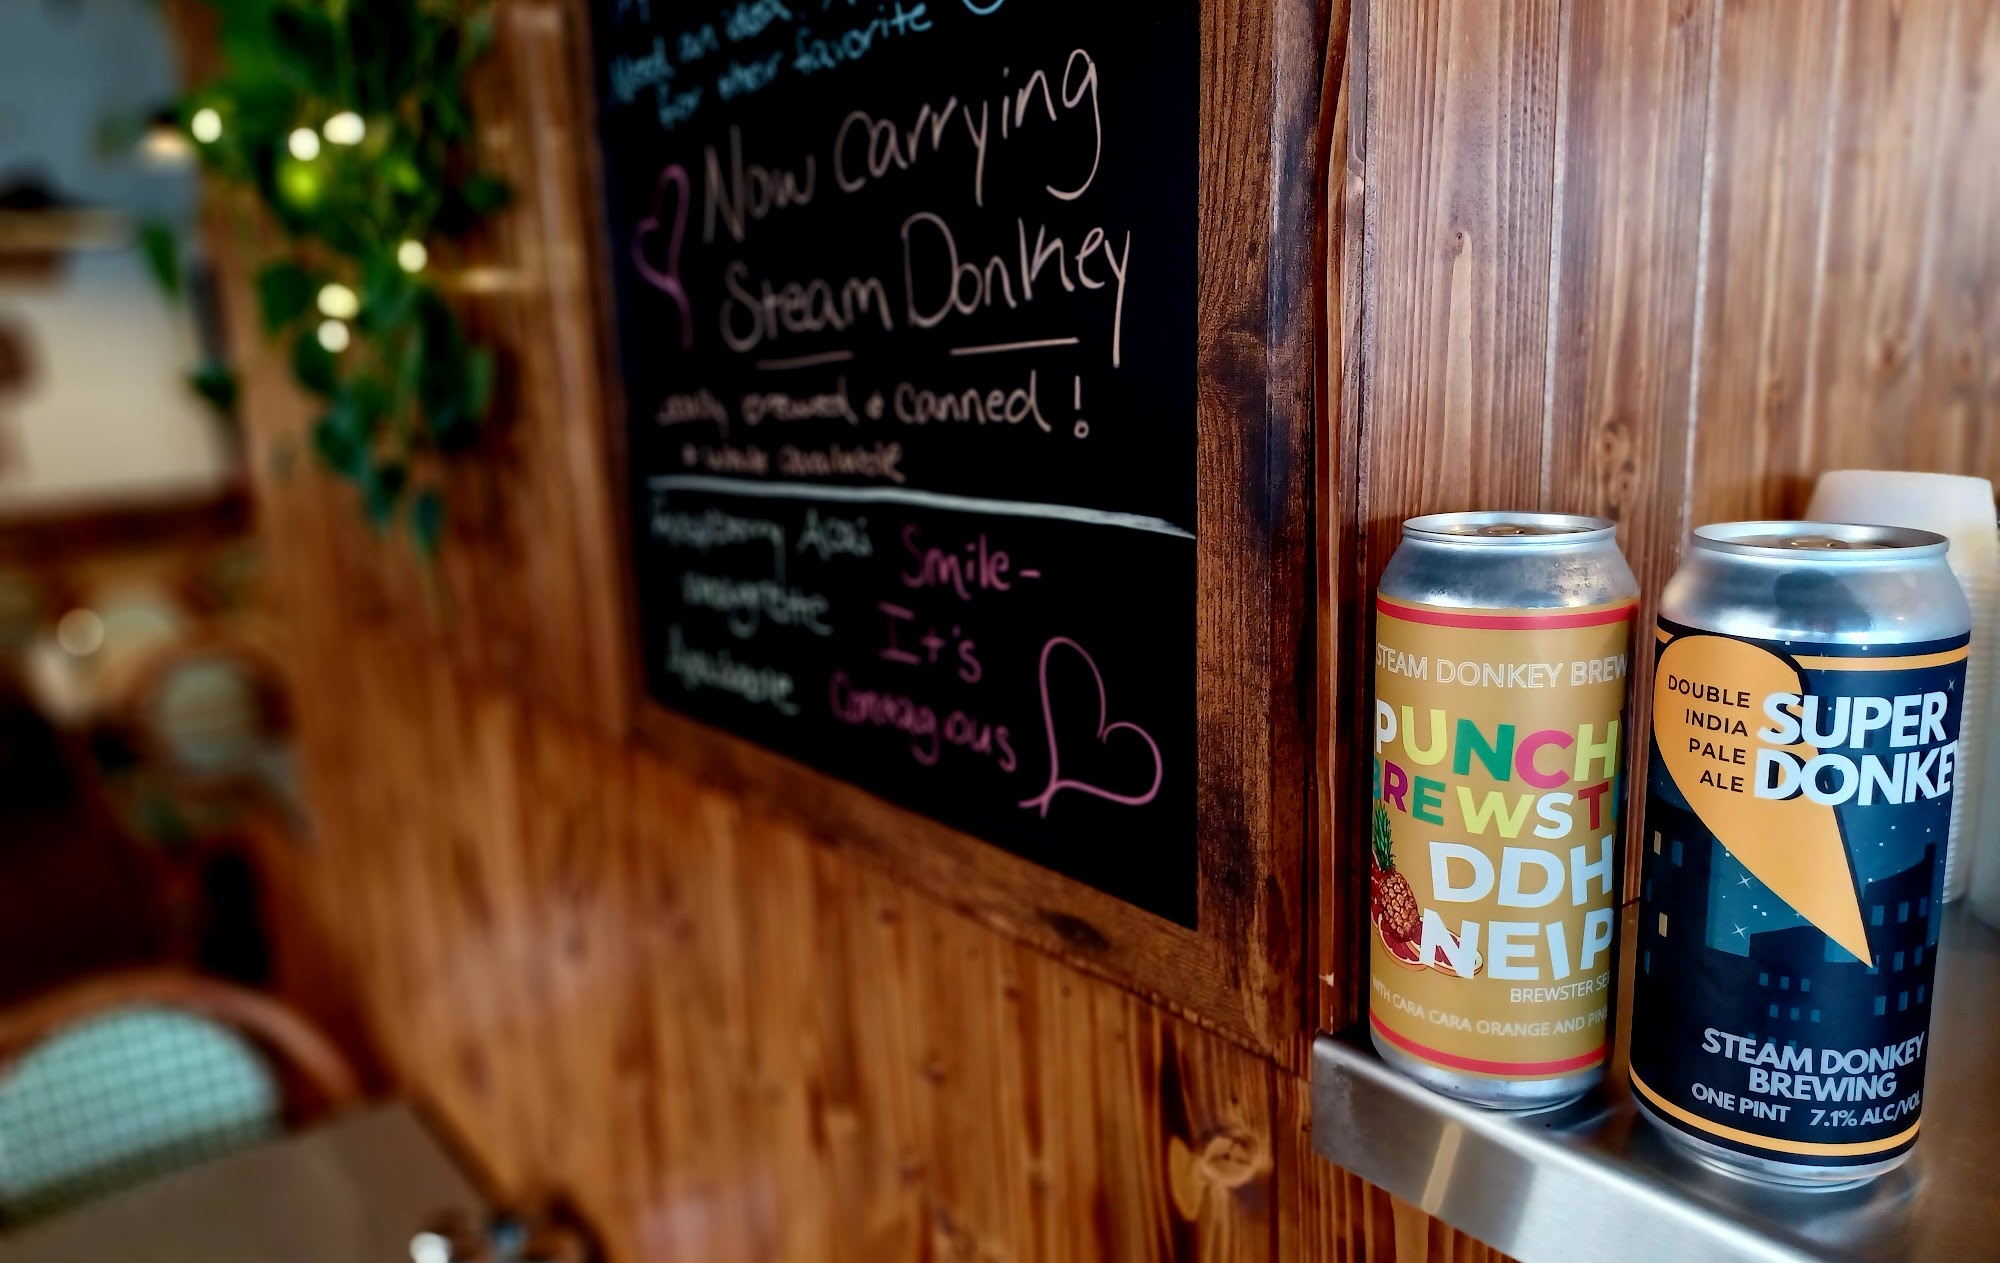 Need an idea?
for their favorite
Now Carrying
Steam Donkey
brewed & Canned!
available
Acai
Smile-
vinaigrette
It's
Available
Contagious
STEAM DONKEY BREW
PUNCH
BREWST
DDH
NEIP
BREWSTER SE
WITH CARA CARA ORANGE AND PINE
DOUBLE
INDIA
PALE
ALE
SUPER
DONKEY
STEAM DONKEY
BREWING
ONE PINT 7.1% ALC/VOL